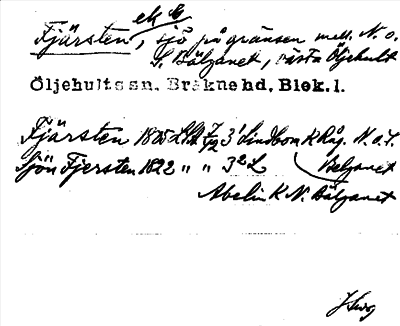 ek C
Fjärsten, sjö på gränsen mell. N. o.
S. Bälganet, västa Öljehult
Öljehults sn. Bräkne hd. Blek. l.
Fjärsten 1875 3' Lindbom K Råg. N. o. S.
sjön Fjersten 1822 " " 3² L Belganet
Abelin K N. Bälganet